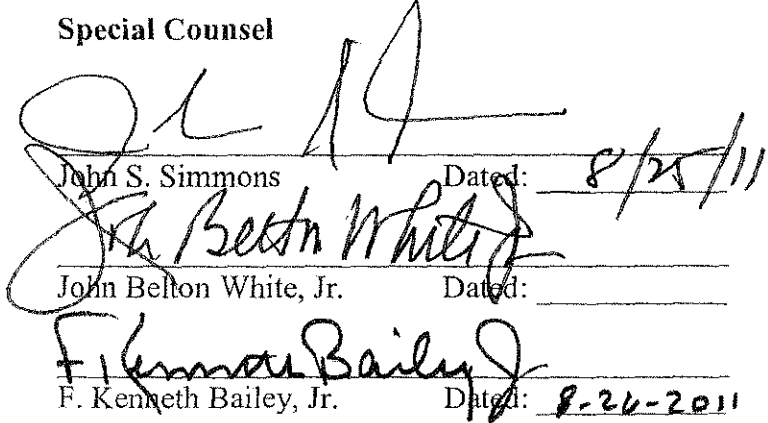 Special Counsel
John S. Simmons Dated: 8/25/11
John Belton White Jr
John Belton White, Jr. Dated:
F. Kenneth Bailey Jr
F. Kenneth Bailey, Jr. Dated: 8-26-2011